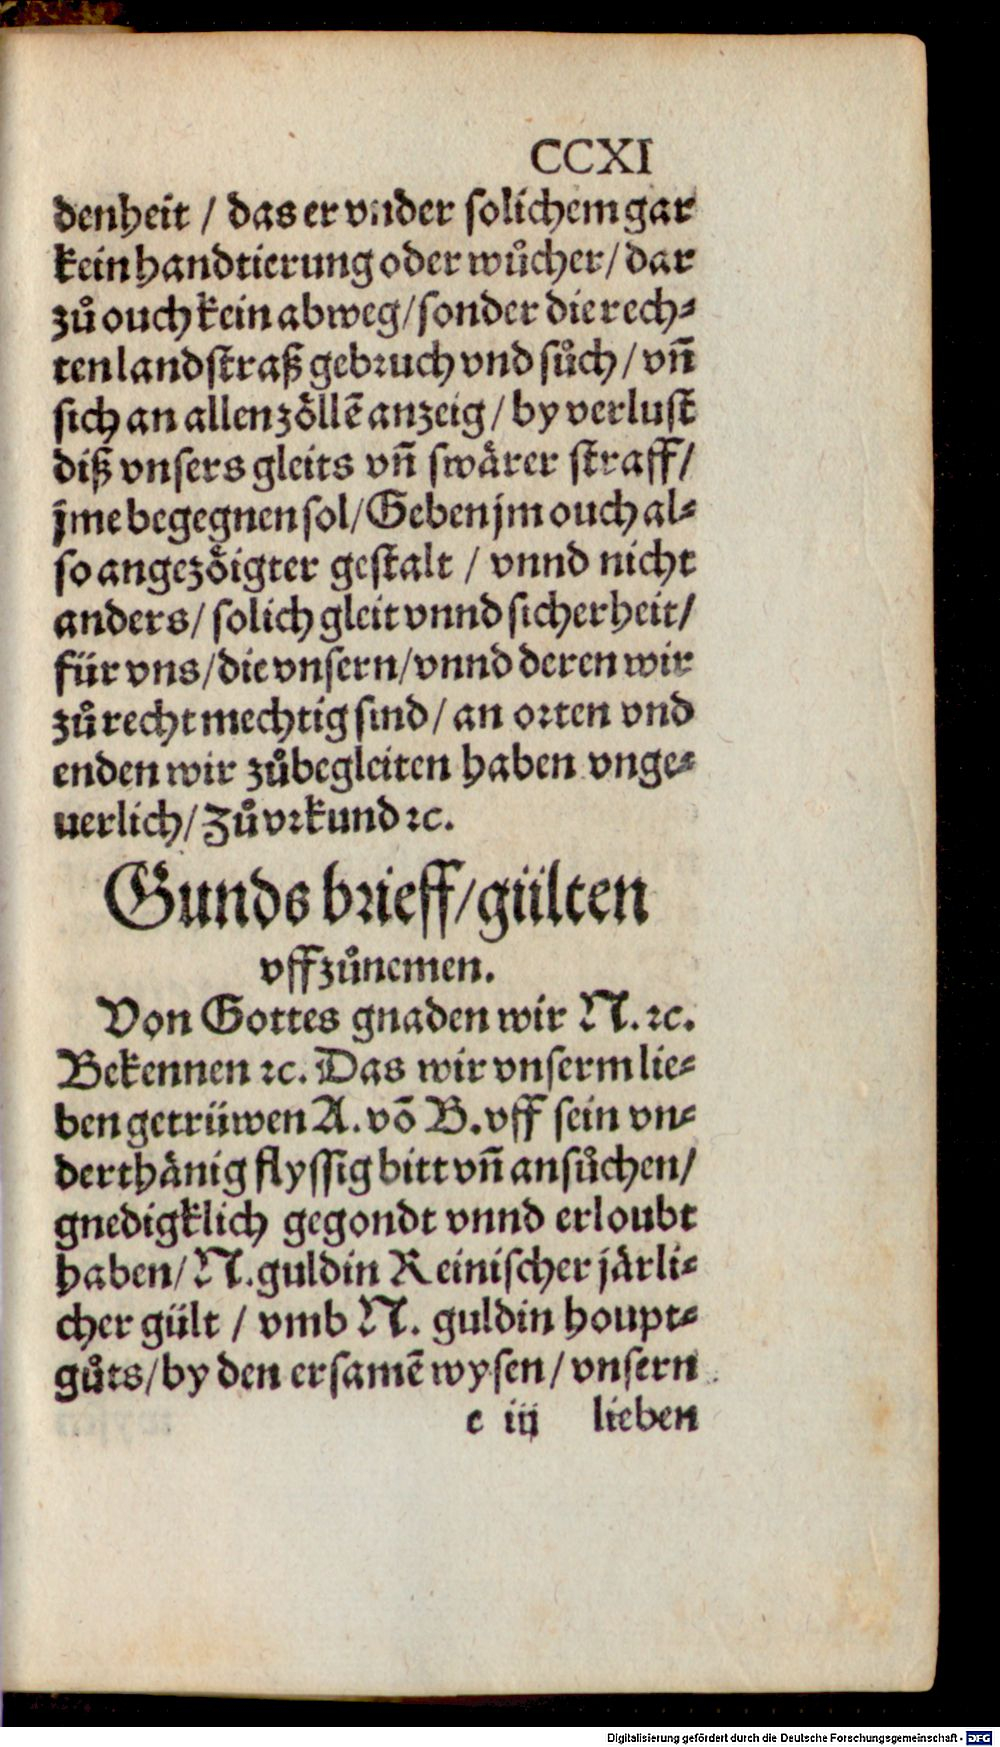 CCXI
denheit / das er vnder solichem gar
kein handtierung oder wůcher / dar
zů ouch kein abweg / sonder die rech⸗
ten landstraß gebꝛuch vnd sůch / vñ
sich an allen zoͤllẽ anzeig / by verlust
diß vnsers gleits vñ swaͤrer straff /
jme begegnen sol / Geben jm ouch al⸗
so angezoͤigter gestalt / vnnd nicht
anders / solich gleit vnnd sicherheit /
für vns / die vnsern / vnnd deren wir
zů recht mechtig sind / an oꝛten vnd
enden wir zůbegleiten haben vnge⸗
uerlich / Zů vꝛkund ꝛc.
Gunds bꝛieff / gülten
vffzůnemen.
Von Gottes gnaden wir N. ꝛc.
Bekennen ꝛc. Das wir vnserm lie⸗
ben getrüwen A. võ B. vff sein vn⸗
derthaͤnig flyssig bitt vñ ansůchen /
gnedigklich gegondt vnnd erloubt
haben / N. guldin Reinischer jaͤrli⸗
cher gült / vmb N. guldin houpt⸗
gůts / by den ersamẽ wysen / vnsern
c iij lieben
Digitalisierung gefördert durch die Deutsche Forschungsgemeinschaft - DFG